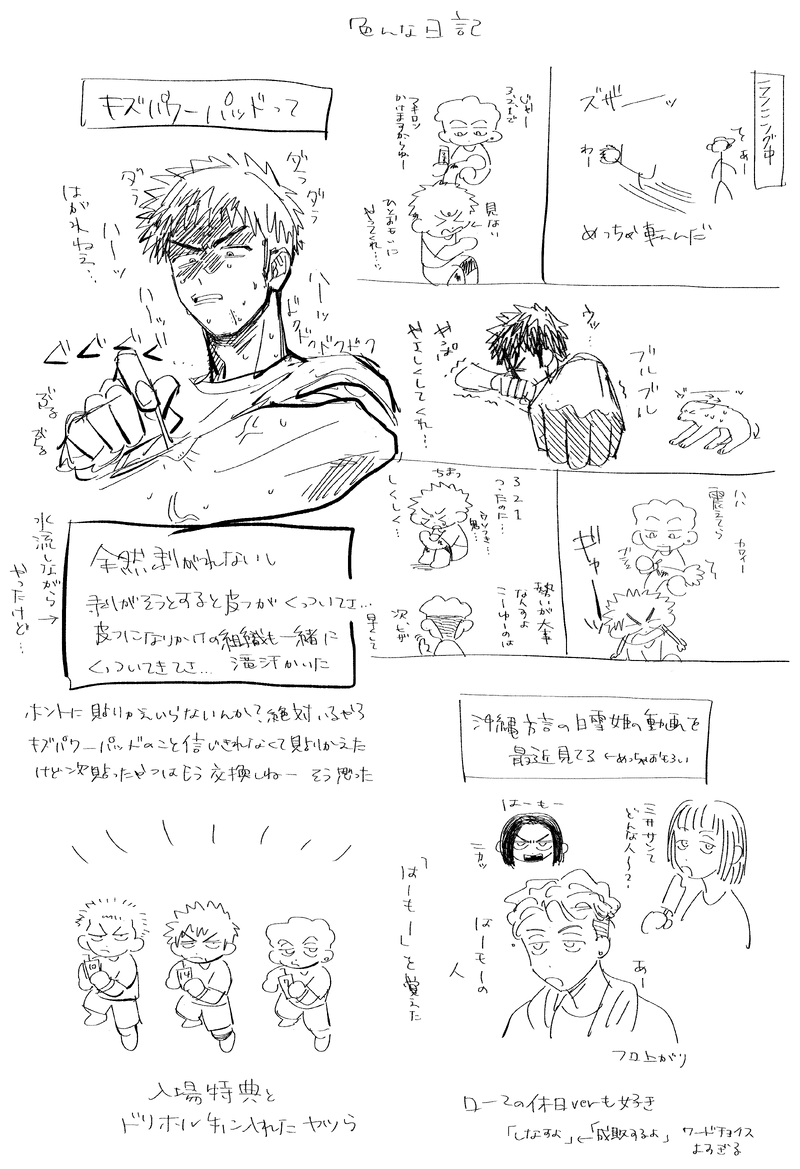 色んな日記
ランニング中
ズザーッ
わー
そ、あー
めっちゃ転んだ
じゃー
3、2、1で
マキロン
かけますからねー
見ない
ひとおもいに
やってくれ…ッ
ウッ…
プルプル
やっぱ
やさしくしてくれ…
ハハ
震えてら
カワイー
ギャーーッ
3 2 1
つったのに…
ウソつき…
男…
しくしく…
勢いが大事
なんすよ
こーゆーのは
次、ヒザ
早くして
キズパワーパッドって
ダラ
ダラ
ダラ
はがれねぇ…
ハーッ
ハーッ
ハーッ
ドクドクドクドク
ぐぐぐぐ…
ぶる
ぶる
全然剥がれないし
剥がそうとすると皮フがくっついてさ…
皮フになりかけの組織も一緒に
くっついてきてさ… 滝汗かいた
水流しながら→
やったけど…
ホントに貼りかえいらないんか?絶対いるやろ
キズパワーパッドのこと信じきれなくて貼りかえた
けど次貼ったやつはもう交換しねー そう思った
沖縄方言の白雪姫の動画を
最近見てる ←めっちゃおもろい
はーもー
ニカッ
三井サンて
どんな人〜?
はーもーの
人
あー
フロ上がり
「はーもー」を覚えた
入場特典と
ドリホル手に入れたヤツら
ローマの休日verも好き
「しなすよ」←「成敗するよ」 ワードチョイス
よすぎる